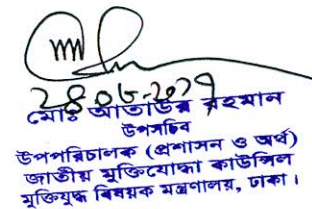 ২৪.০৮.২০২৭
মোঃ আতাউর রহমান
উপসচিব
উপপরিচালক (প্রশাসন ও অর্থ)
জাতীয় মুক্তিযোদ্ধা কাউন্সিল
মুক্তিযুদ্ধ বিষয়ক মন্ত্রণালয়, ঢাকা।